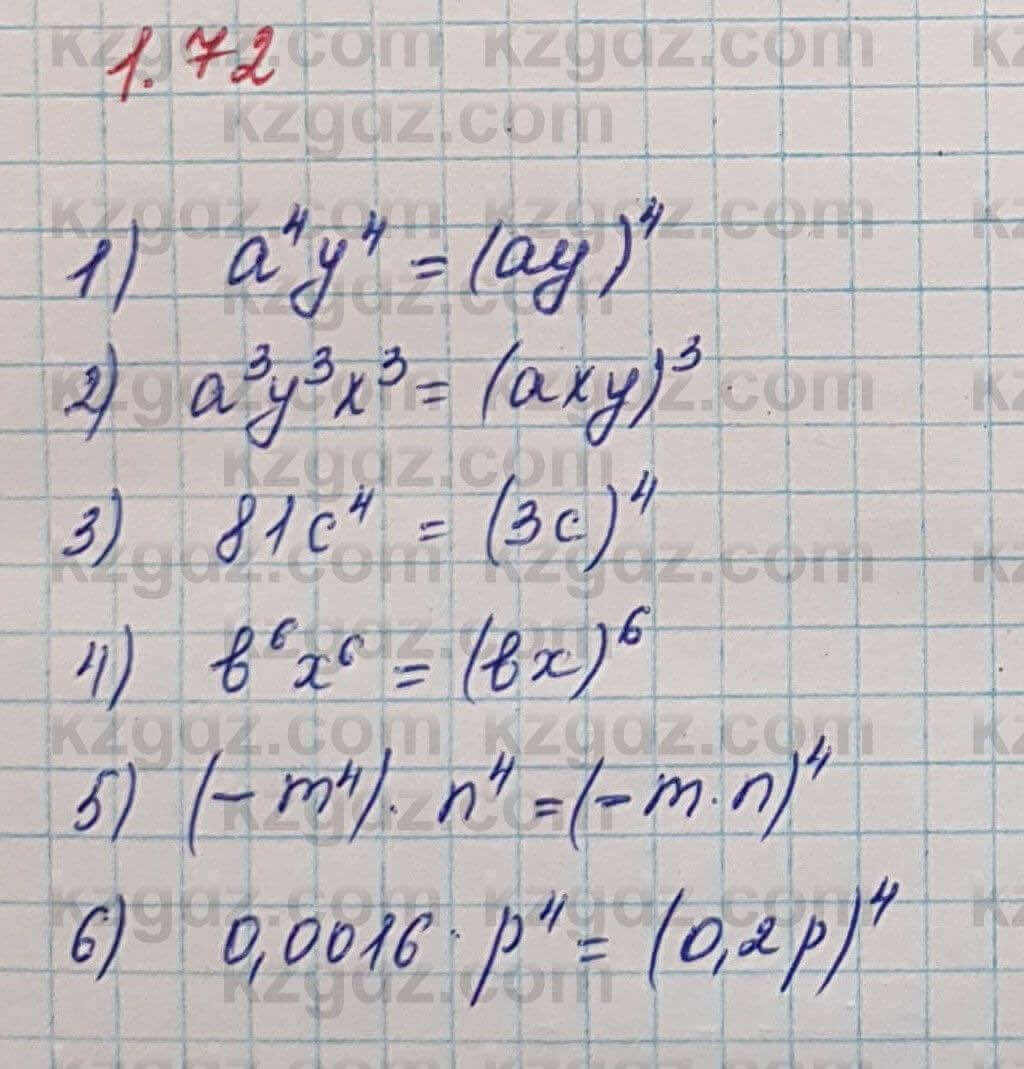 1.72
1) a⁴y⁴ = (ay)⁴
2) a³y³x³ = (axy)³
3) 81c⁴ = (3c)⁴
4) в⁶x⁶ = (вx)⁶
5) (-m⁴)· n⁴ = (-m·n)⁴
6) 0,0016· p⁴ = (0,2p)⁴
kzgdz.com